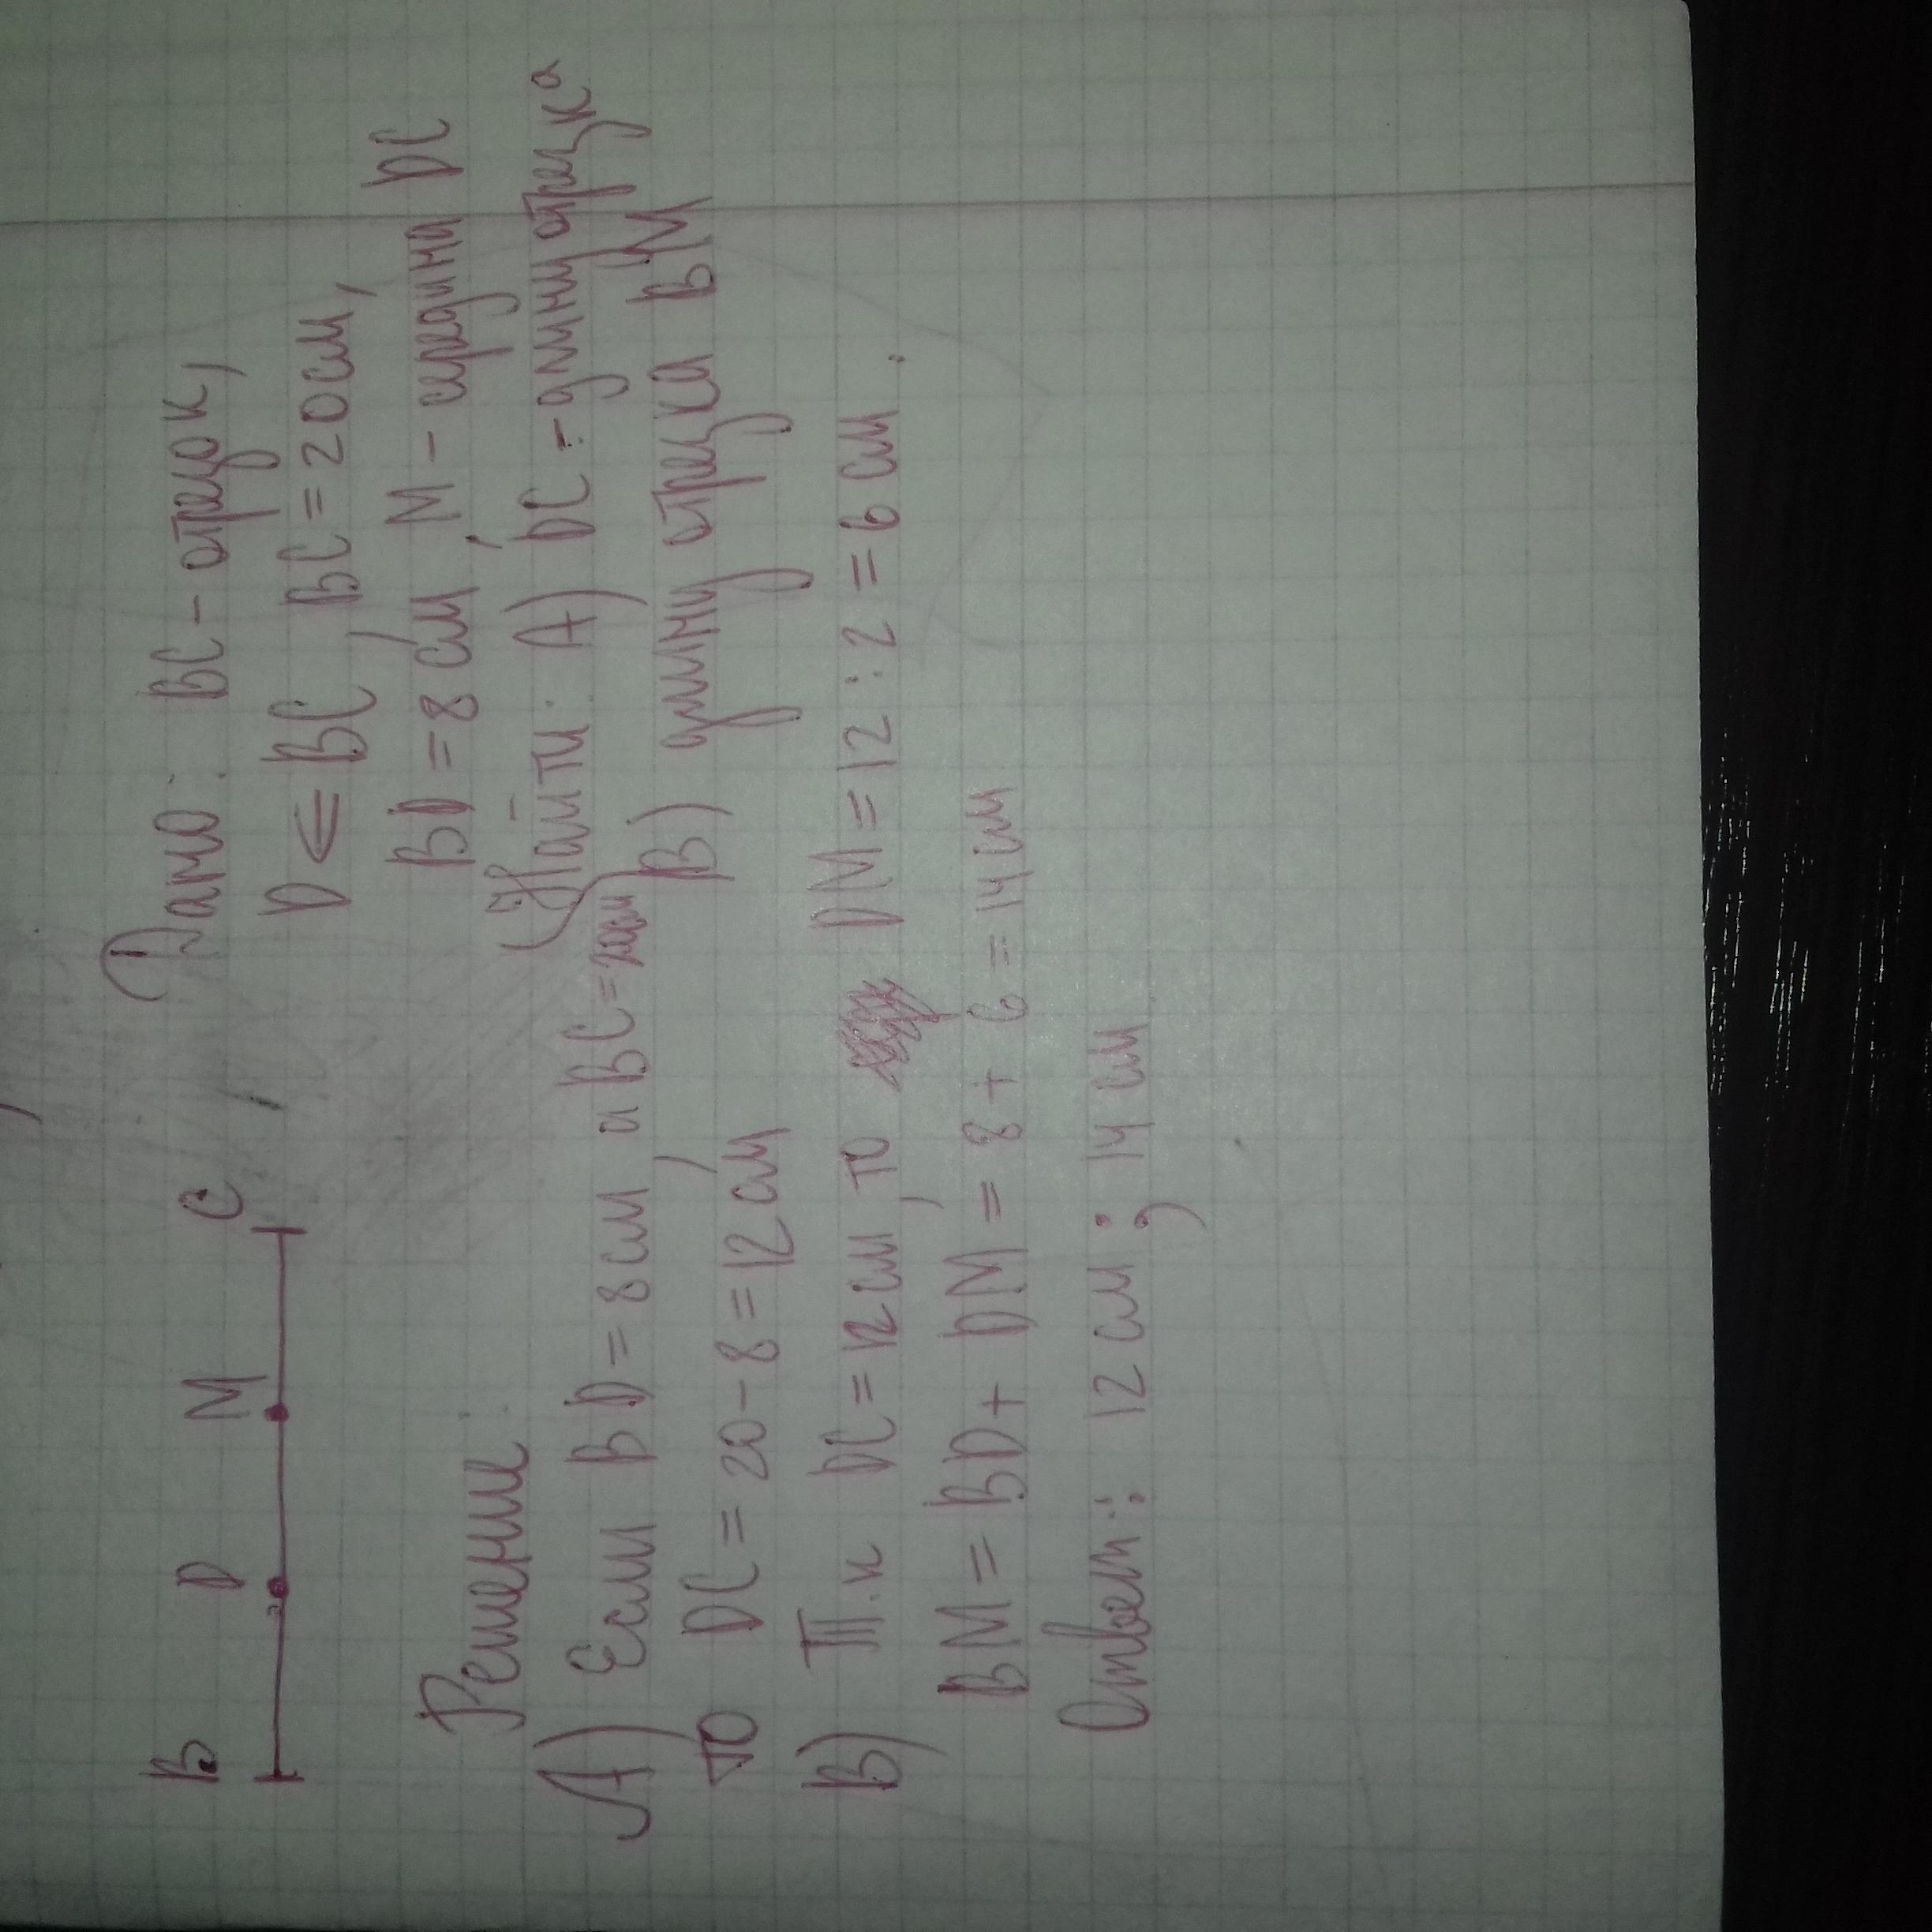 B D M C
Дано: BC - отрезок,
D ∈ BC, BC = 20см,
BD = 8 см, M - середина DC
Найти: A) DC - длину отрезка
B) длину отрезка BM
Решение:
A) Если BD = 8см, а BC = 20см
то DC = 20 - 8 = 12 см
B) Т.к DC = 12 см, то DM = 12 : 2 = 6 см.
BM = BD + DM = 8 + 6 = 14 см
Ответ: 12 см; 14 см